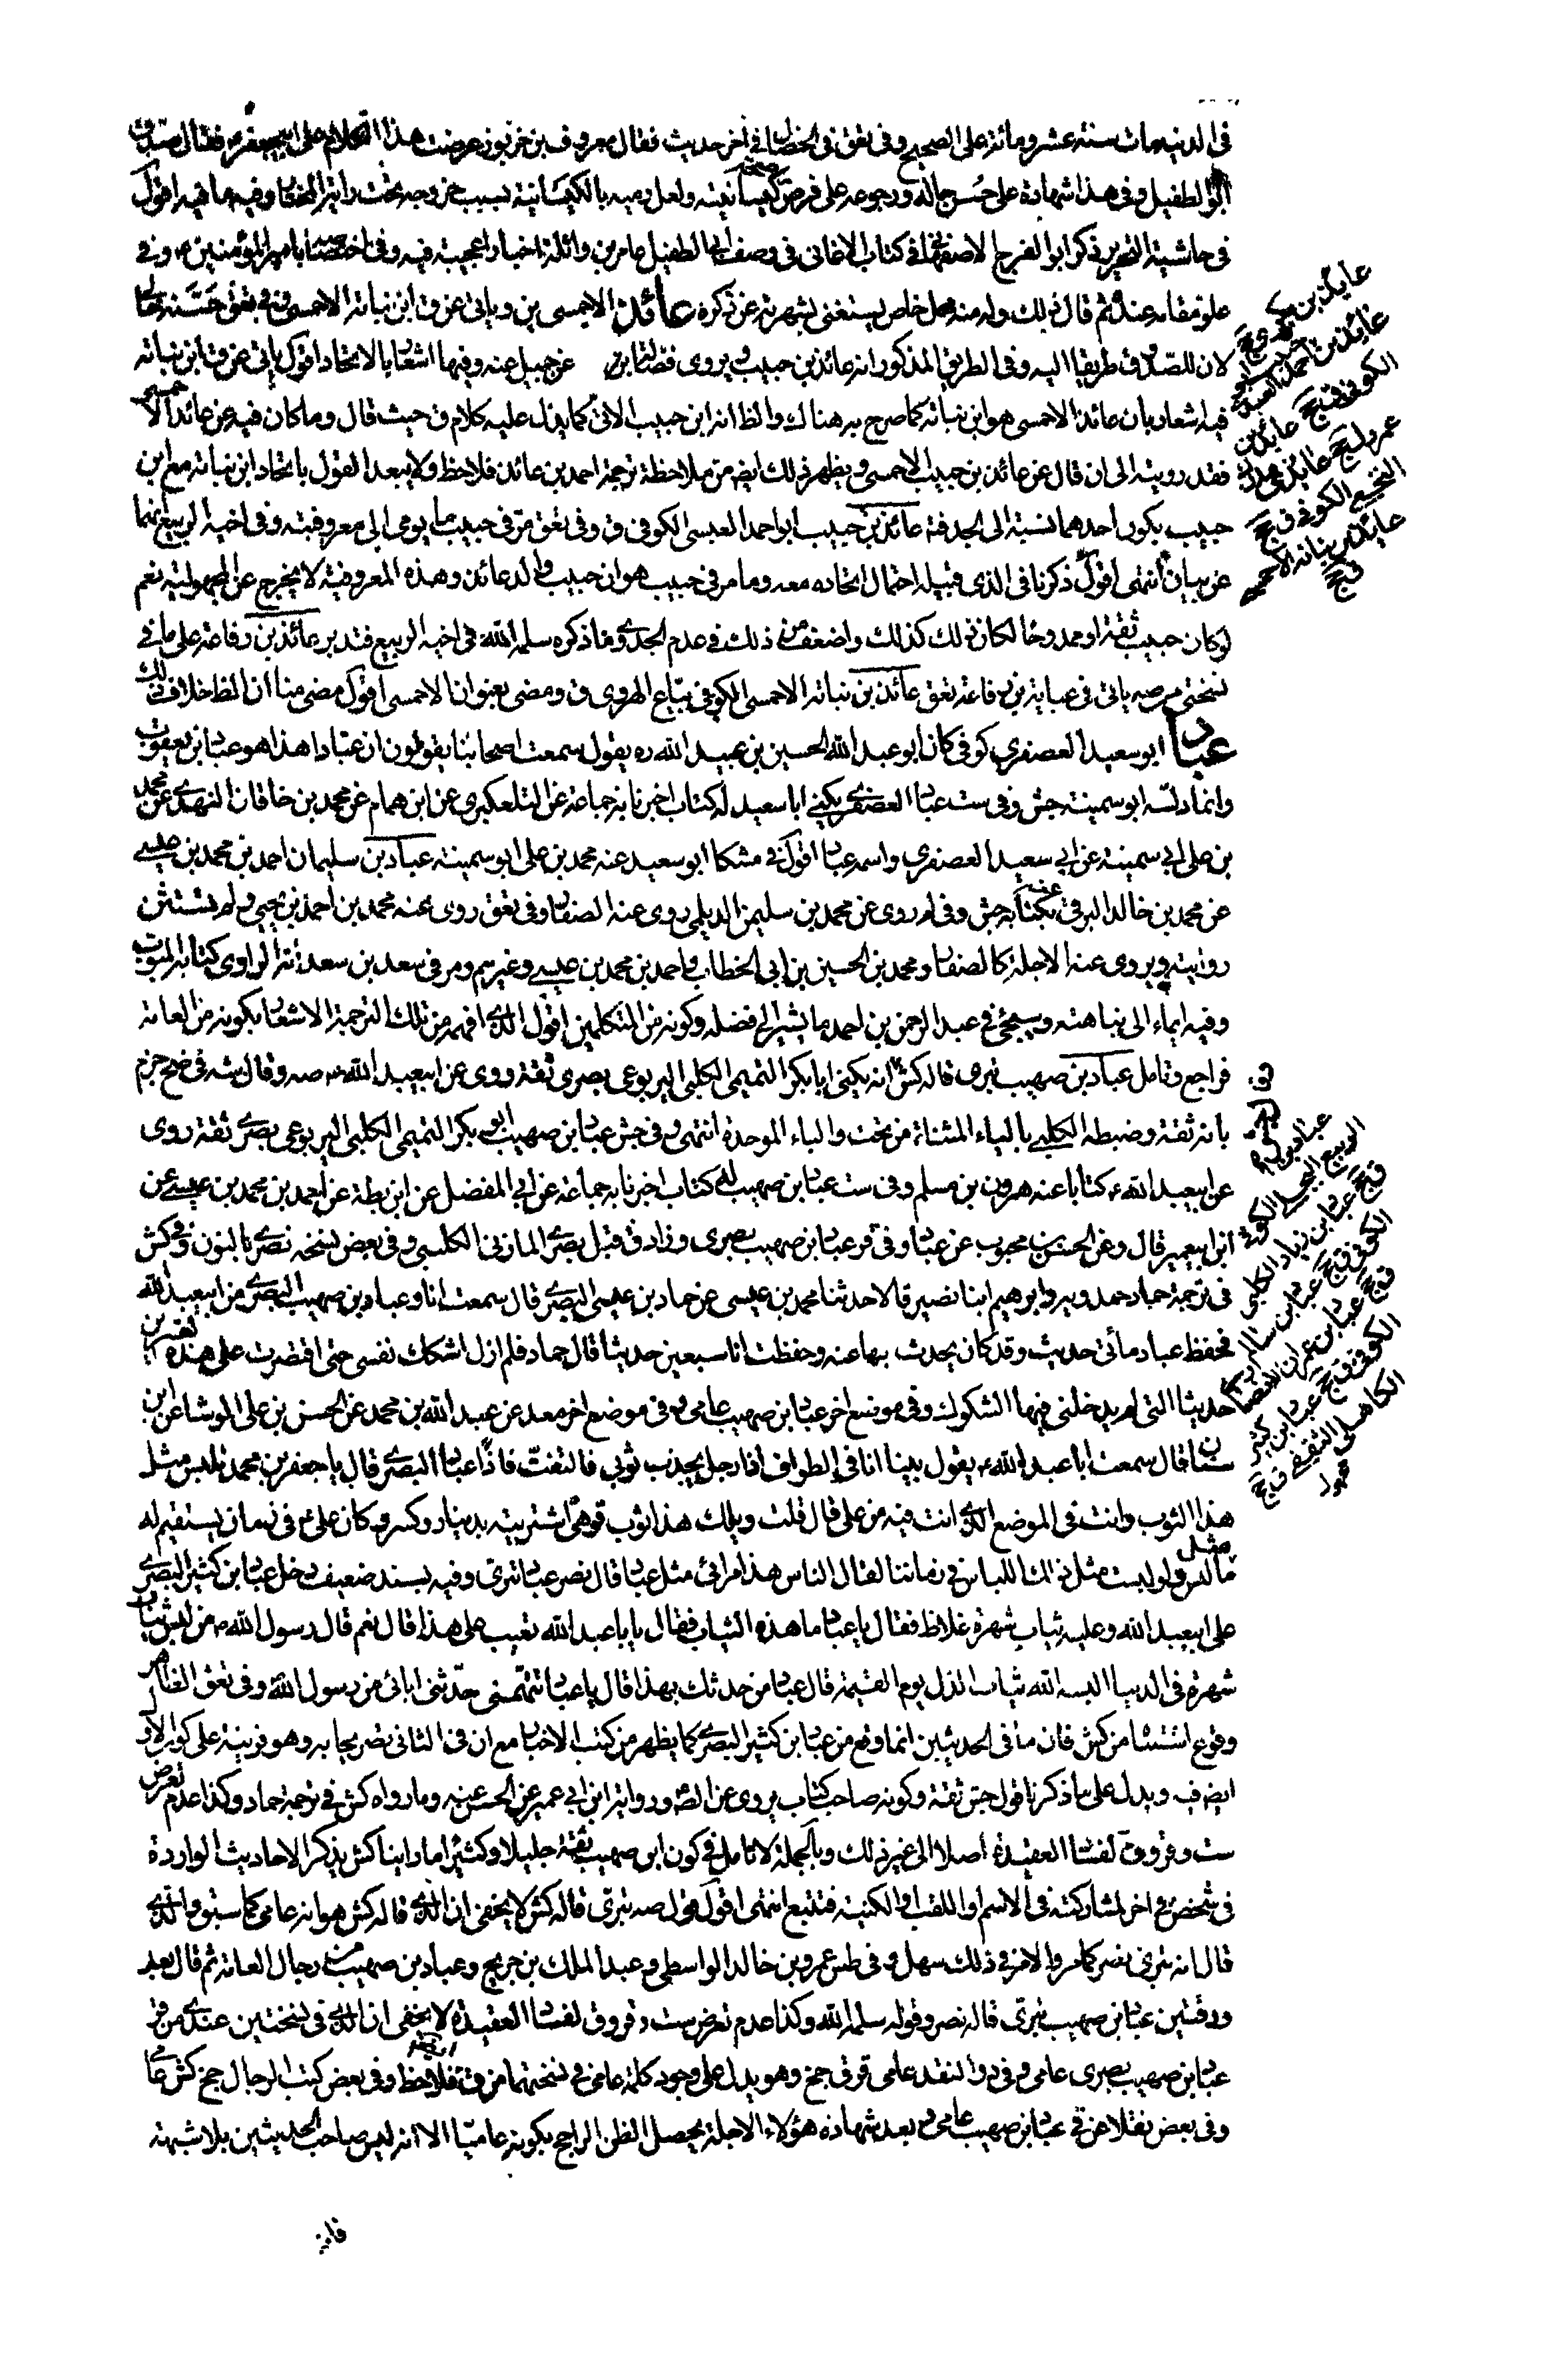 في الدنيا مات سنة عشر ومائة على الصحيح وفي تعق في الخصال في آخر حديث فقال معروف بن خربوذ عرضت هذا الكلام على ابيجعفر ع فقال صدق
ابو الطفيل وفي هذا شهادة على حسن حاله ورجوعه على فرض صحة كيسانيته ولعل رميه بالكيسانية بسبب خروجه تحت راية المختار وفيه ما فيه اقول
في حاشية التحرير ذكر ابو الفرج الاصفهاني في كتاب الاغاني في وصف ابي الطفيل عامر بن واثلة اخبارا عجيبة فيه وفي اختصاصه بامير المؤمنين ع وفي
علو مقامه عنده ثم قال ذلك وله منه محل خاص يستغنى بشهرته عن ذكره عائذ الاحمسي ين وياتي عن ق ابن نباتة الاحمسي وفي تعق حسنه خالي
لان للصدوق طريقا اليه وفي الطريق المذكور انه عائذ بن حبيب ويروى فضالة بن عن جميل عنه وفيها اشعار بالاتحاد اقول ياتي عن ق ابن نباتة
فيه اشعار بان عائذ الاحمسي هو ابن نباتة كما صرح به هناك والظ انه ابن حبيب الاتي كما يدل عليه كلام ق حيث قال وما كان فيه عن عائذ الاحمسي
فقد رويته الى ان قال عن عائذ بن حبيب الاحمسي ويظهر ذلك ايض من ملاحظة ترجمة احمد بن عائذ فلاحظ ولا يبعد القول باتحاد ابن نباتة مع ابن
حبيب بكون احدهما نسبة الى الجد فة عائذ بن حبيب ابو احمد العبسي الكوفي ق وفي تعق مر في حبيب ما يومي الى معروفيته وفي اخيه الربيع ايضا
عن بيان انتهى اقول ذكرنا في الذي قبيله احتمال اتحاده معه وما مر في حبيب هو ان حبيب والد عائذ وهذه المعروفية لا يخرج عن المجهولية نعم
لو كان حبيب ثقة او ممدوحا لكان ذلك كذلك واضعف من ذلك في عدم الجدي وما ذكره سلمه الله في اخيه الربيع فتدبر عائذ بن رفاعة على ما في
نسختي من صه ياتي في عباية بن رفاعة تعق عائذ بن نباتة الاحمسي الكوفي بياع الهروي ق ومضى بعنوان الاحمسي اقول مضى منا ان الظ خلاف ذلك
عباد ابو سعيد العصفري كوفي كان ابو عبد الله الحسين بن عبيد الله ره يقول سمعت اصحابنا يقولون ان عبادا هذا هو عباد بن يعقوب
وانما دلسه ابو سمينة جش وفي ست عباد العصفري يكنى ابا سعيد له كتاب اخبرنا به جماعة عن التلعكبري عن ابن همام عن محمد بن خاقان النهدي عن محمد
بن علي ابي سمينة عن ابي سعيد العصفري واسمه عباد اقول في مشكا ابو سعيد عنه محمد بن علي ابو سمينة عباد بن سليمان احمد بن محمد بن عيسى
عن محمد بن خالد البرقي عنه بكتابه جش وفي لم روى عن محمد بن سليمن الديلمي روى عنه الصفار وفي تعق روى عنه محمد بن احمد بن يحيى ولم يستثن
روايته ويروى عنه الاجلة كالصفار ومحمد بن الحسين بن ابي الخطاب واحمد بن محمد بن عيسى وغيرهم ومر في سعد بن سعد انه الراوي كتابه المبوب
وفيه ايماء الى نباهته وسيجئ في عبد الرحمن بن احمد ما يشير الى فضله وكونه من المتكلمين اقول الذي افهم من تلك الترجمة الاشعار بكونه من العامة
فراجع وتامل عباد بن صهيب بتري قاله كش انه يكنى ابا بكر التميمي الكليبي اليربوعي بصري ثقة روى عن ابيعبد الله ع صه وقال شه في ضح جزم
بانه ثقة وضبطه الكليبي بالياء المثناة من تحت والباء الموحدة انتهى وفي جش عباد بن صهيب ابو بكر التميمي الكليبي اليربوعي بصري ثقة روى
عن ابيعبد الله ع كتابا عنه هرون بن مسلم وفي ست عباد بن صهيب له كتاب اخبرنا به جماعة عن ابي المفضل عن ابن بطة عن احمد بن محمد بن عيسى عن
ابن ابيعمير قال وعن الحسن بن محبوب عن عباد وفي قر عباد بن صهيب بصري وزاد ق قبل بصري المازني الكلبي وفي بعض نسخه نصري بالنون وفي كش
في ترجمة حماد حمدويه وابرهيم ابنا نصير قالا حدثنا محمد بن عيسى عن حماد بن عيسى البصري قال سمعت انا وعباد بن صهيب البصري من ابيعبد الله
فحفظ عباد مائتي حديث وقد كان يحدث بها عنه وحفظت انا سبعين حديثا قال حماد فلم ازل اشكك نفسي حتى اقتصرت على هذه العشرين
حديثا التي لم يدخلني فيها الشكوك وفي موضع اخر عباد بن صهيب عامي وفي موضع اخر معد عن عبد الله بن محمد عن الحسن بن علي الوشا عن ابن
سنان قال سمعت ابا عبد الله ع يقول بينا انا في الطواف اذا رجل يجذب ثوبي فالتفت فاذا عباد البصري قال يا جعفر بن محمد تلبس مثل
هذا الثوب وانت في الموضع الذي انت فيه من علي قال قلت ويلك هذا ثوب قوهي اشتريته بدينار وكسر وكان علي ع في زمان يستقيم له
ما لبس ولو لبست مثل ذلك اللباس في زماننا لقال الناس هذا مرائي مثل عباد قال نصر عباد بتري وفيه بسند ضعيف دخل عباد بن كثير البصري
على ابيعبد الله وعليه ثياب شهرة غلاظ فقال يا عباد ما هذه الثياب فقال يا باعبد الله تعيب علي هذا قال نعم قال رسول الله ص من لبس ثياب
شهرة في الدنيا البسه الله ثياب الذل يوم القيمة قال عباد من حدثك بهذا قال يا عباد تتهمني حدثني ابائي عن رسول الله وفي تعق الظاهر
وقوع اشتباه من كش فان ما في الحديثين انما وقع من عباد بن كثير البصري كما يظهر من كتب الاخبار مع ان في الثاني تصريحا به وهو قرينة على كون الاول
ايض فيه ويدل على ما ذكرنا قول جش ثقة وكونه صاحب كتاب يروى عن الص ورواية ابن ابي عمير عن الحسن عنه وما رواه كش في ترجمة حماد وكذا عدم تعرض
ست وقر وق لفساد العقيدة اصلا الى غير ذلك وبالجملة لا تامل في كون ابن صهيب ثقة جليلا وكثيرا ما راينا كش يذكر الاحاديث الواردة
في شخص في اخر لمشاركته في الاسم او اللقب او الكنية فتتبع انتهى اقول قول صه بتري قاله كش لا يخفى ان الذي قاله كش هو انه عامي كما سبق والذي
قال انه بتري نصر كما مر والامر في ذلك سهل وفي طس عمرو بن خالد الواسطي وعبد الملك بن جريج وعباد بن صهيب من رجال العامة ثم قال بعد
ورقتين عباد بن صهيب بتري قاله نصر وقوله سلمه الله وكذا عدم تعرض ست وقر وق لفساد العقيدة لا يخفى ان الذي في نسختين عندي من قر
عباد بن صهيب بصري عامي وفي د والنقد عامي قر ق جخ وهو يدل على وجود كلمة عامي في نسختهما من ق ايض فلاحظ وفي بعض كتب الرجال جخ كش عامي
وفي بعض نقلا عن ق عباد بن صهيب عامي وبعد شهادة هؤلاء الاجلة يحصل الظن الراجح بكونه عاميا الا انه ليس صاحب الحديثين بلا شبهة